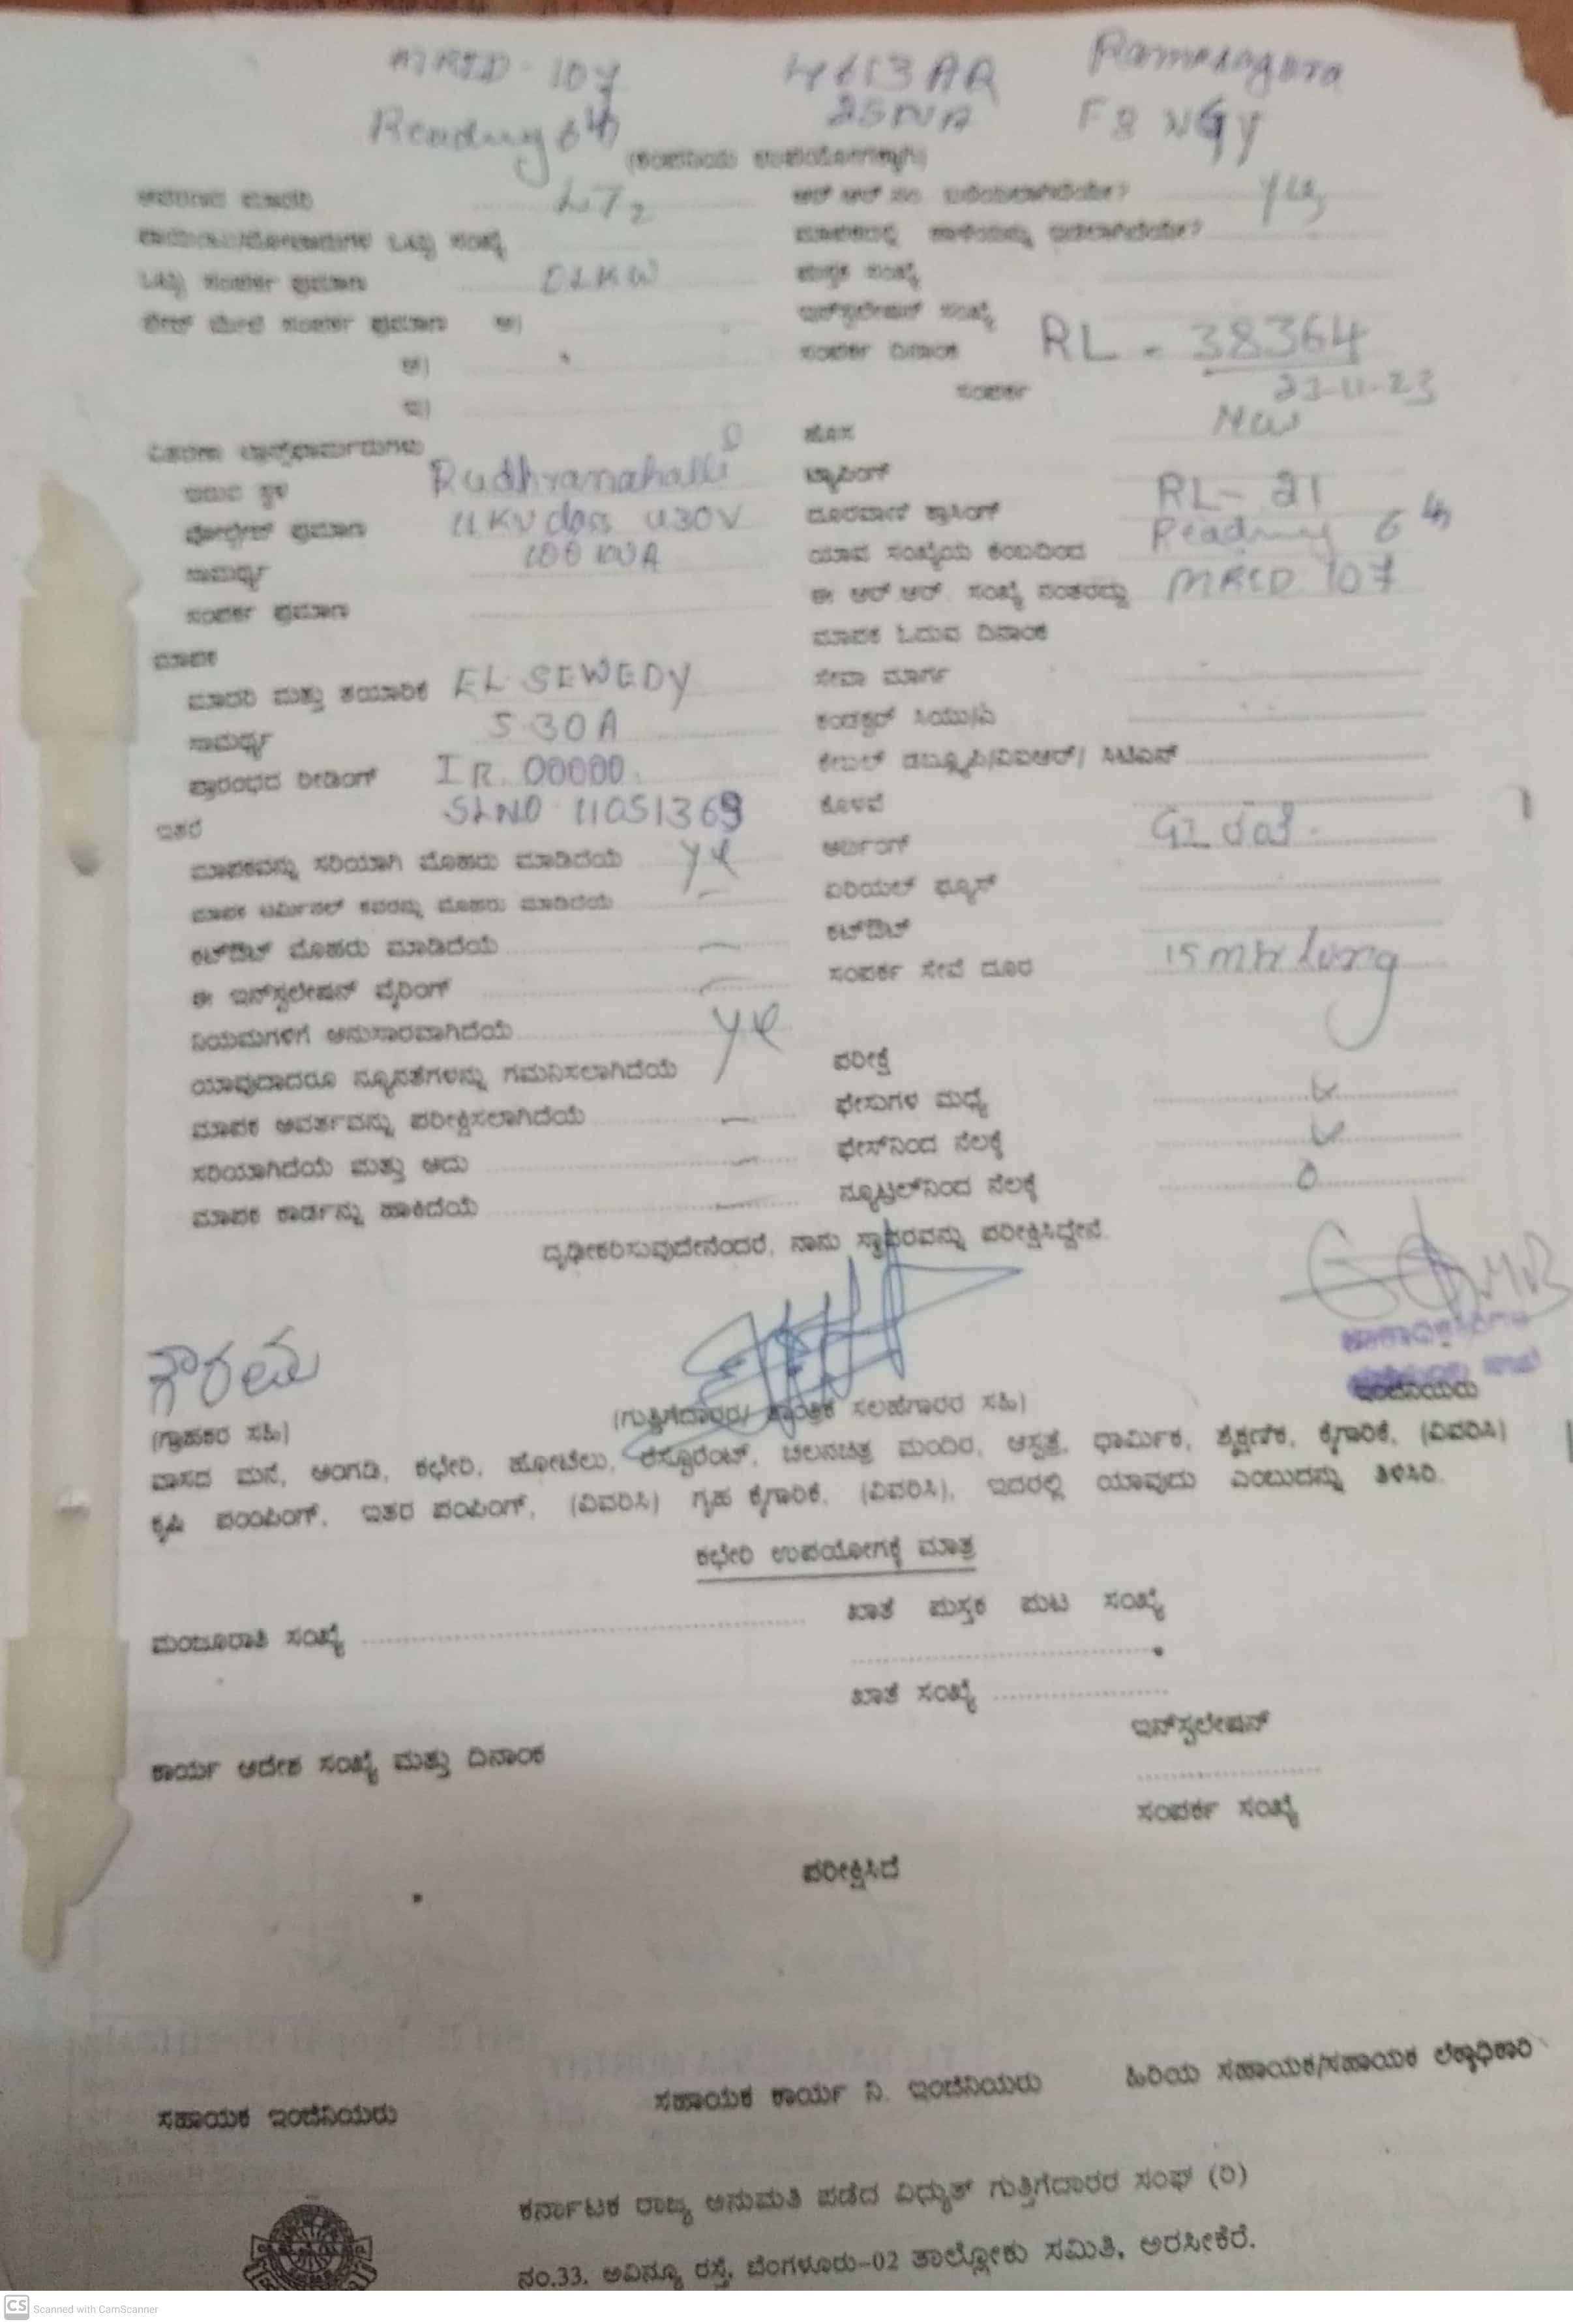 MRID - 107 4613 AR Ramasagara
Reading 6th 25 NA F8 NGY
(ಕಂಪನಿಯ ಉಪಯೋಗಕ್ಕಾಗಿ)
LT2
ಆರ್ ಆರ್ ನಂ. ಬರೆಯಲಾಗಿದೆಯೇ? yes
ಸಂಖ್ಯೆ
ಸಂಪರ್ಕ ಪ್ರಮಾಣ
ಪುಸ್ತಕ ಸಂಖ್ಯೆ
ಮೇಲೆ ಸಂಪರ್ಕ ಪ್ರಮಾಣ ಅ)
ಇನ್‌ಸ್ಟಲೇಷನ್ ಸಂಖ್ಯೆ
ಆ)
ಸಂಪರ್ಕ ದಿನಾಂಕ RL - 38364
ಇ)
ಸಂಪರ್ಕ 23-11-23
ಹೊಸ New
ವಿತರಣಾ ಟ್ರಾನ್ಸ್‌ಫಾರ್ಮರುಗಳು
ಇರುವ ಸ್ಥಳ Rudhranahalli
ಟ್ಯಾಪಿಂಗ್ RL - 21
ವೋಲ್ಟೇಜ್ ಪ್ರಮಾಣ 11 KV class 430V
ದೂರವಾಣಿ ಕ್ರಾಸಿಂಗ್ Reading 6th
ಸಾಮರ್ಥ್ಯ 100 KVA
ಯಾವ ಸಂಖ್ಯೆಯ ಕಂಬದಿಂದ
ಸಂಪರ್ಕ ಪ್ರಮಾಣ
ಈ ಆರ್.ಆರ್. ಸಂಖ್ಯೆ ನಂತರದ್ದು MRID 107
ಮಾಪಕ
ಮಾಪಕ ಓದುವ ದಿನಾಂಕ
ಮಾದರಿ ಮತ್ತು ತಯಾರಿಕೆ EL SEWEDY
ಸೇವಾ ಮಾರ್ಗ
ಸಾಮರ್ಥ್ಯ 5-30A
ಕಂಡಕ್ಟರ್ ಸಿಯು/ಎ
ಪ್ರಾರಂಭದ ರೀಡಿಂಗ್ IR. 00000.
ಕೇಬಲ್ ಡಬ್ಲ್ಯೂಪಿ/ವಿಐಆರ್/ ಸಿಟಿಎಸ್
SLNO 11051369
ಇತರೆ
ಕೊಳವೆ
ಮಾಪಕವನ್ನು ಸರಿಯಾಗಿ ಮೊಹರು ಮಾಡಿದೆಯೆ ye
ಅರ್ಥಿಂಗ್ GI ತಂತಿ.
ಮಾಪಕ ಟರ್ಮಿನಲ್ ಕವರನ್ನು ಮೊಹರು ಮಾಡಿದೆಯೆ
ಏರಿಯಲ್ ಫ್ಯೂಸ್
ಕಟ್‌ಔಟ್ ಮೊಹರು ಮಾಡಿದೆಯೆ
ಕಟ್‌ಔಟ್
ಈ ಇನ್‌ಸ್ಟಲೇಷನ್ ವೈರಿಂಗ್
ಸಂಪರ್ಕ ಸೇವೆ ದೂರ 15 mtr long
ನಿಯಮಗಳಿಗೆ ಅನುಸಾರವಾಗಿದೆಯೆ ye
ಯಾವುದಾದರೂ ನ್ಯೂನತೆಗಳನ್ನು ಗಮನಿಸಲಾಗಿದೆಯೆ
ಪರೀಕ್ಷೆ
ಮಾಪಕ ಆವರ್ತವನ್ನು ಪರೀಕ್ಷಿಸಲಾಗಿದೆಯೆ
ಫೇಸುಗಳ ಮಧ್ಯೆ
ಸರಿಯಾಗಿದೆಯೆ ಮತ್ತು ಅದು
ಫೇಸ್‌ನಿಂದ ನೆಲಕ್ಕೆ
ಮಾಪಕ ಕಾರ್ಡನ್ನು ಹಾಕಿದೆಯೆ
ನ್ಯೂಟ್ರಲ್‌ನಿಂದ ನೆಲಕ್ಕೆ 0
ದೃಢೀಕರಿಸುವುದೇನೆಂದರೆ, ನಾನು ಸ್ಥಾವರವನ್ನು ಪರೀಕ್ಷಿಸಿದ್ದೇನೆ.
ಗೌರಮ್ಮ
(ಗ್ರಾಹಕರ ಸಹಿ) (ಗುತ್ತಿಗೆದಾರರ/ ತಾಂತ್ರಿಕ ಸಲಹೆಗಾರರ ಸಹಿ) ಇಂಜಿನಿಯರು
ವಾಸದ ಮನೆ, ಅಂಗಡಿ, ಕಛೇರಿ, ಹೋಟೆಲು, ರೆಸ್ಟೊರೆಂಟ್, ಚಲನಚಿತ್ರ ಮಂದಿರ, ಆಸ್ಪತ್ರೆ, ಧಾರ್ಮಿಕ, ಶೈಕ್ಷಣಿಕ, ಕೈಗಾರಿಕೆ, (ವಿವರಿಸಿ)
ಕೃಷಿ ಪಂಪಿಂಗ್, ಇತರ ಪಂಪಿಂಗ್, (ವಿವರಿಸಿ) ಗೃಹ ಕೈಗಾರಿಕೆ, (ವಿವರಿಸಿ), ಇದರಲ್ಲಿ ಯಾವುದು ಎಂಬುದನ್ನು ತಿಳಿಸಿರಿ.
ಕಛೇರಿ ಉಪಯೋಗಕ್ಕೆ ಮಾತ್ರ
ಮಂಜೂರಾತಿ ಸಂಖ್ಯೆ
ಖಾತೆ ಪುಸ್ತಕ ಪುಟ ಸಂಖ್ಯೆ
ಖಾತೆ ಸಂಖ್ಯೆ
ಇನ್‌ಸ್ಟಲೇಷನ್
ಕಾರ್ಯ ಆದೇಶ ಸಂಖ್ಯೆ ಮತ್ತು ದಿನಾಂಕ
ಸಂಪರ್ಕ ಸಂಖ್ಯೆ
ಪರೀಕ್ಷಿಸಿದೆ
ಸಹಾಯಕ ಇಂಜಿನಿಯರು ಸಹಾಯಕ ಕಾರ್ಯ ನಿ. ಇಂಜಿನಿಯರು ಹಿರಿಯ ಸಹಾಯಕ/ಸಹಾಯಕ ಲೆಕ್ಕಾಧಿಕಾರಿ
ಕರ್ನಾಟಕ ರಾಜ್ಯ ಅನುಮತಿ ಪಡೆದ ವಿಧ್ಯುತ್ ಗುತ್ತಿಗೆದಾರರ ಸಂಘ (ರಿ)
ನಂ.33, ಅವಿನ್ಯೂ ರಸ್ತೆ, ಬೆಂಗಳೂರು-02 ತಾಲ್ಲೋಕು ಸಮಿತಿ, ಅರಸೀಕೆರೆ.
CS Scanned with CamScanner